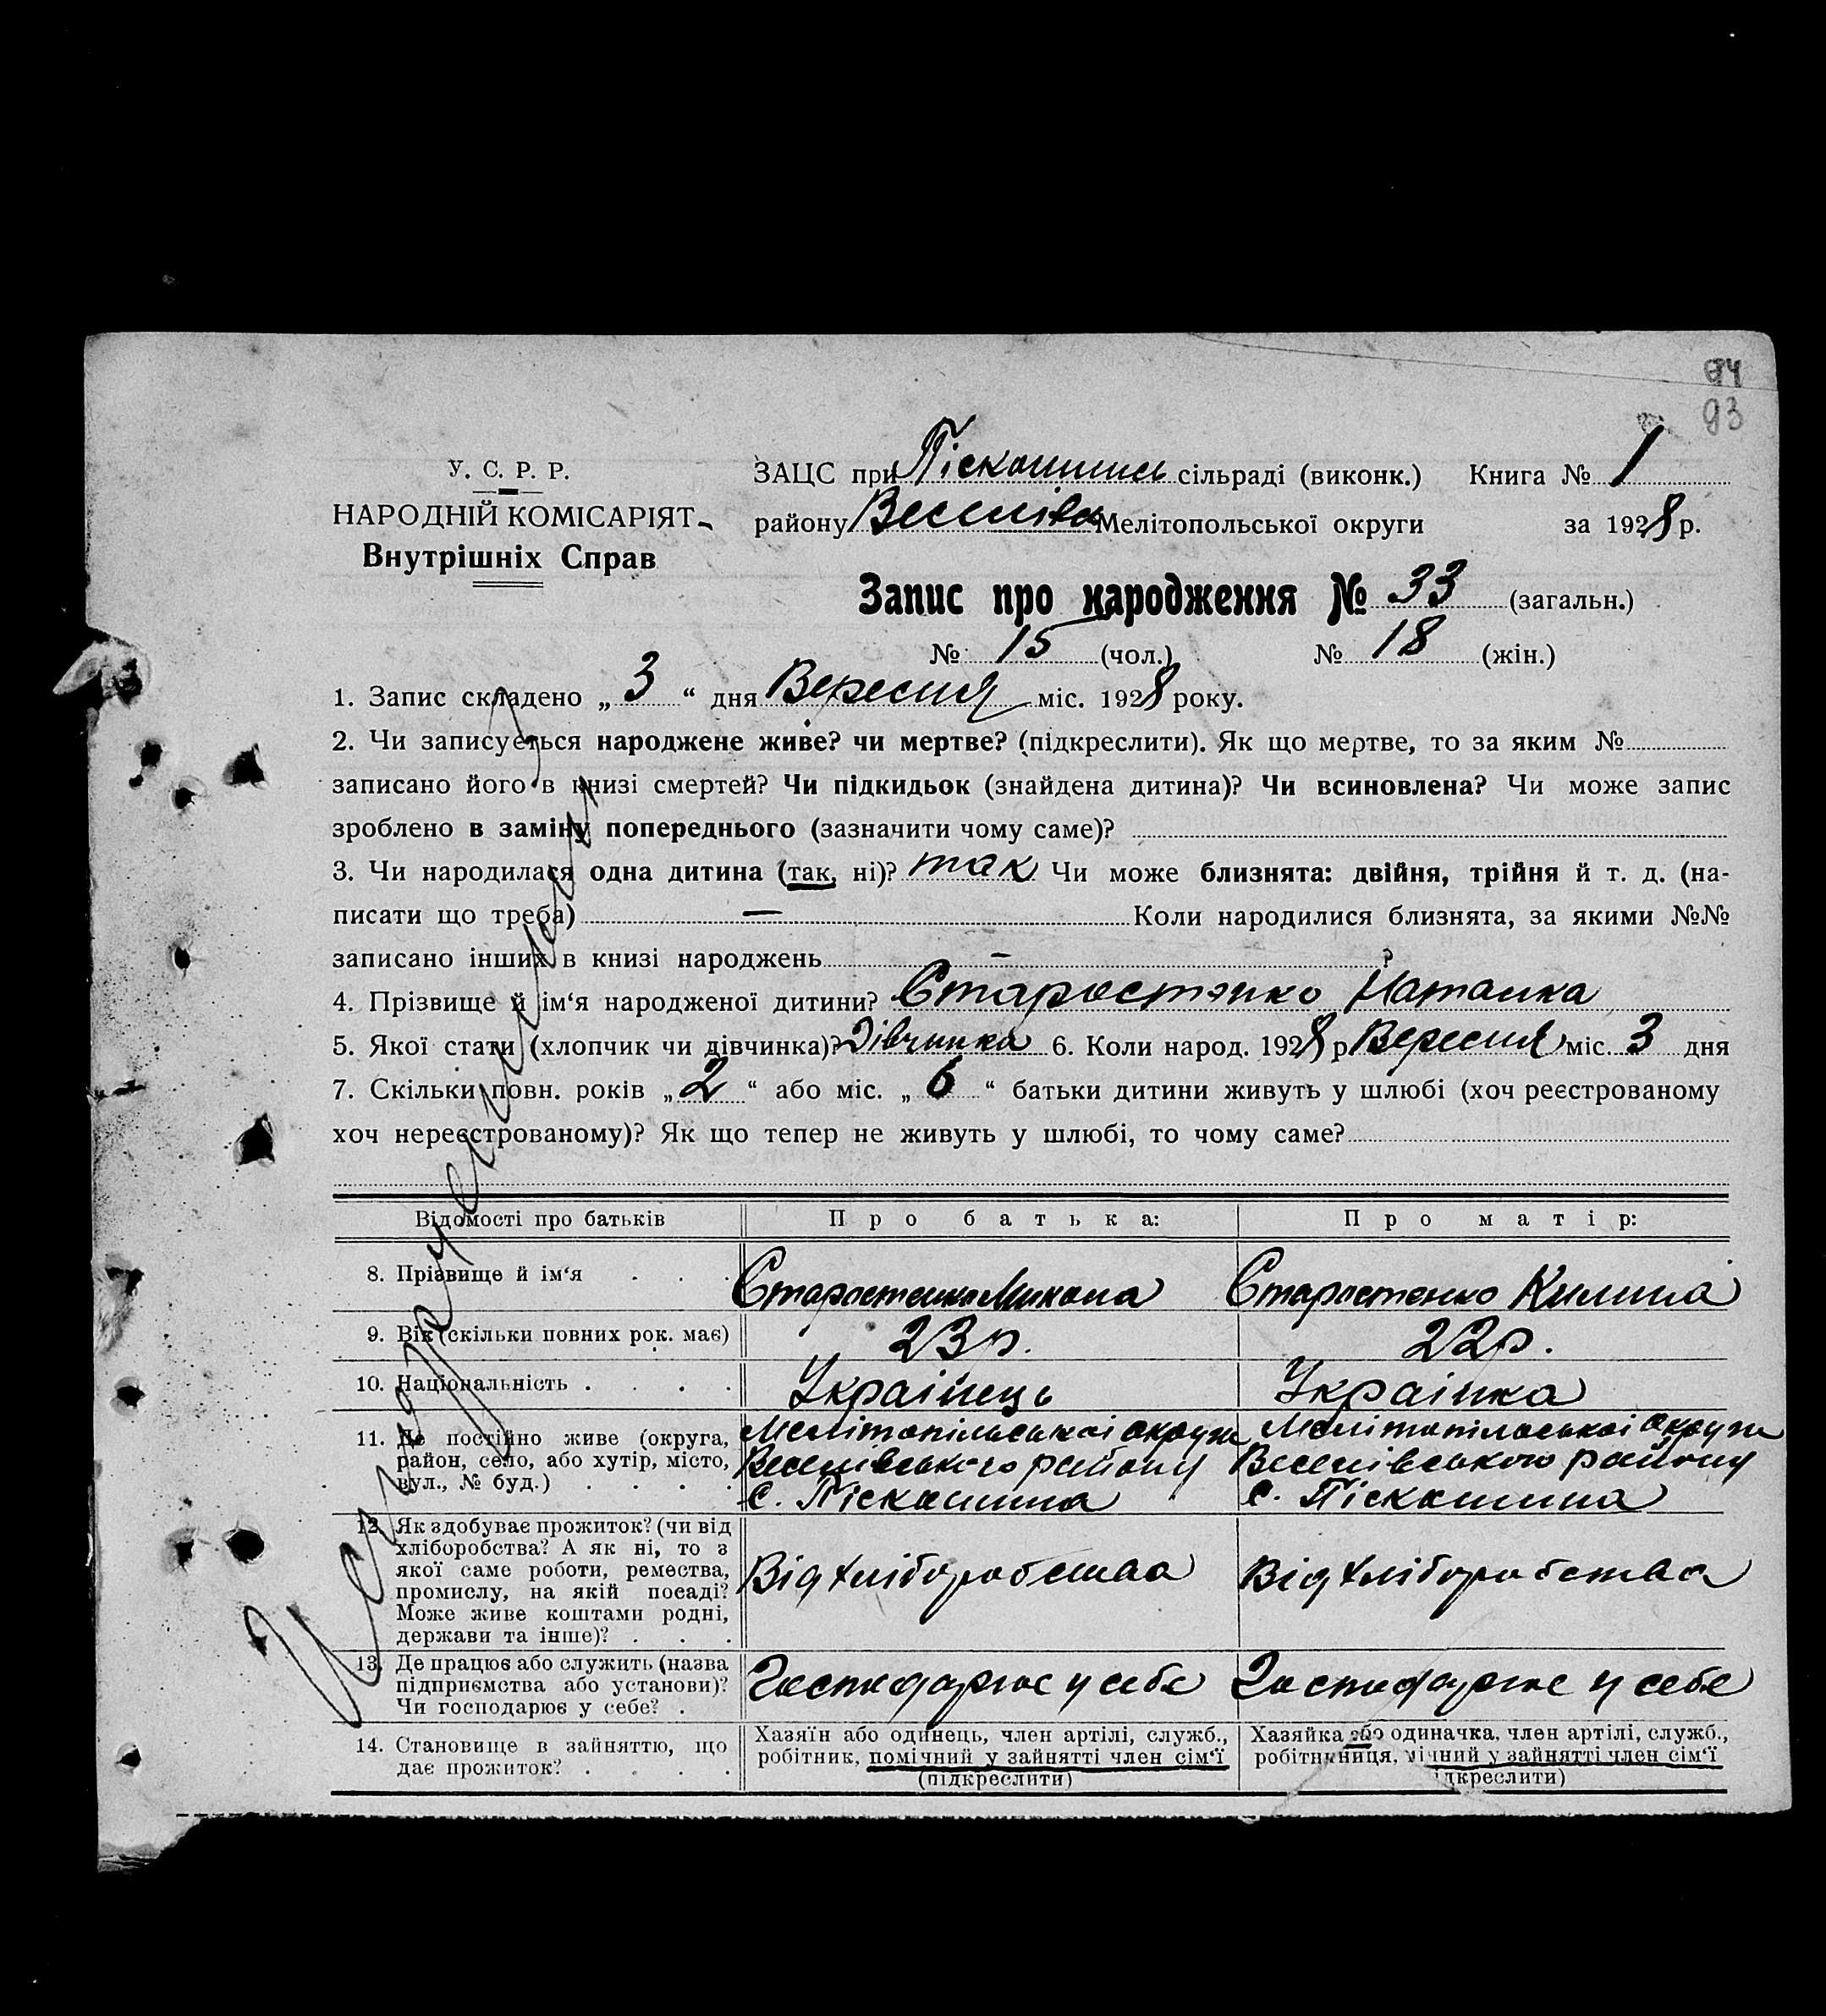 94
93
У. С. Р. Р.
НАРОДНІЙ КОМІСАРІЯТ
Внутрішніх Справ
ЗАЦС при Піскошинсь сільраді (виконк.) Книга № 1
району Веселівсь Мелітопольської округи за 1928 р.
Запис про народження № 33 (загальн.)
№ 15 (чол.) № 18 (жін.)
1. Запис складено „ 3 “ дня Вересня міс. 1928 року.
2. Чи записується народжене живе? чи мертве? (підкреслити). Як що мертве, то за яким №
записано його в книзі смертей? Чи підкидьок (знайдена дитина)? Чи всиновлена? Чи може запис
зроблено в заміну попереднього (зазначити чому саме)?
3. Чи народилася одна дитина (так, ні)? так Чи може близнята: двійня, трійня й т. д. (на-
писати що треба) — Коли народилися близнята, за якими №№
записано інших в книзі народжень — ?
4. Прізвище й ім‘я народженої дитини? Старостэнко Наталка
5. Якої стати (хлопчик чи дівчинка)? Дівчинка 6. Коли народ. 1928 р Вересня міс. 3 дня
7. Скільки повн. років „ 2 “ або міс. „ 6 “ батьки дитини живуть у шлюбі (хоч реєстрованому
хоч нереєстрованому)? Як що тепер не живуть у шлюбі, то чому саме?
Відомості про батьків Про батька: Про матір:
8. Прізвище й ім‘я . . . Старостенко Микола Старостенко Килина
9. Вік (скільки повних рок. має) 23 р. 22 р.
10. Національність . . . . Украінець Украінка
11. Де постійно живе (округа, Мелітопільськоі округи Мелітопільськоі округи
район, село, або хутір, місто, Веселівського району Веселівського району
вул., № буд.) . . . . С. Піскошина С. Піскошина
12. Як здобуває прожиток? (чи від
хліборобства? А як ні, то з
якої саме роботи, ремества,
промислу, на якій посаді? Від хліборобства Від хліборобства
Може живе коштами родні,
держави та інше)? . . .
13. Де працює або служить (назва
підприємства або установи)? Господарює у себе Господарює у себе
Чи господарює у себе? .
14. Становище в зайняттю, що Хазяїн або одинець, член артілі, служб., Хазяйка або одиначка, член артілі, служб.,
дає прожиток? . . . . робітник, помічний у зайнятті член сім‘ї робітниця, мічний у зайнятті член сім‘ї
(підкреслити) дкреслити)